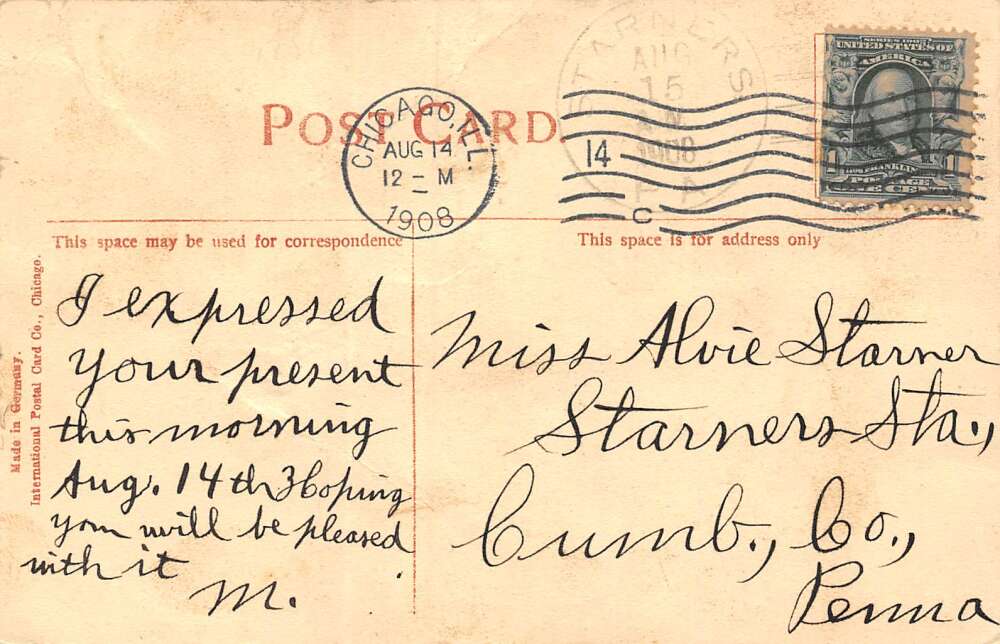 POST CARD.
CHICAGO, ILL.
AUG 14
12 – M
1908
STARNERS
AUG
15
1908
PA
14
C
SERIES 1902
UNITED STATES OF
AMERICA
FRANKLIN
1 POSTAGE 1
ONE CENT
This space may be used for correspondence
This space is for address only
Made in Germany.
International Postal Card Co., Chicago.
I expressed
Your present
this morning
Aug. 14th Hoping
you will be pleased
with it
M.
Miss Alvie Starner
Starners Sta.,
Cumb., Co.,
Penna